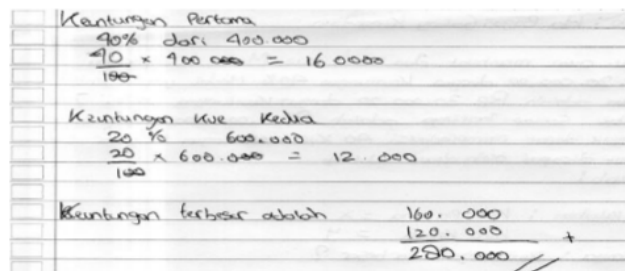 Keuntungan Pertama
40% dari 400.000
40
100 × 400 000 = 16 0000
Keuntungan Kue Kedua
20 % 600.000
20
100 × 600.000 = 12.000
Keuntungan terbesar adalah 160.000
120.000 +
280.000